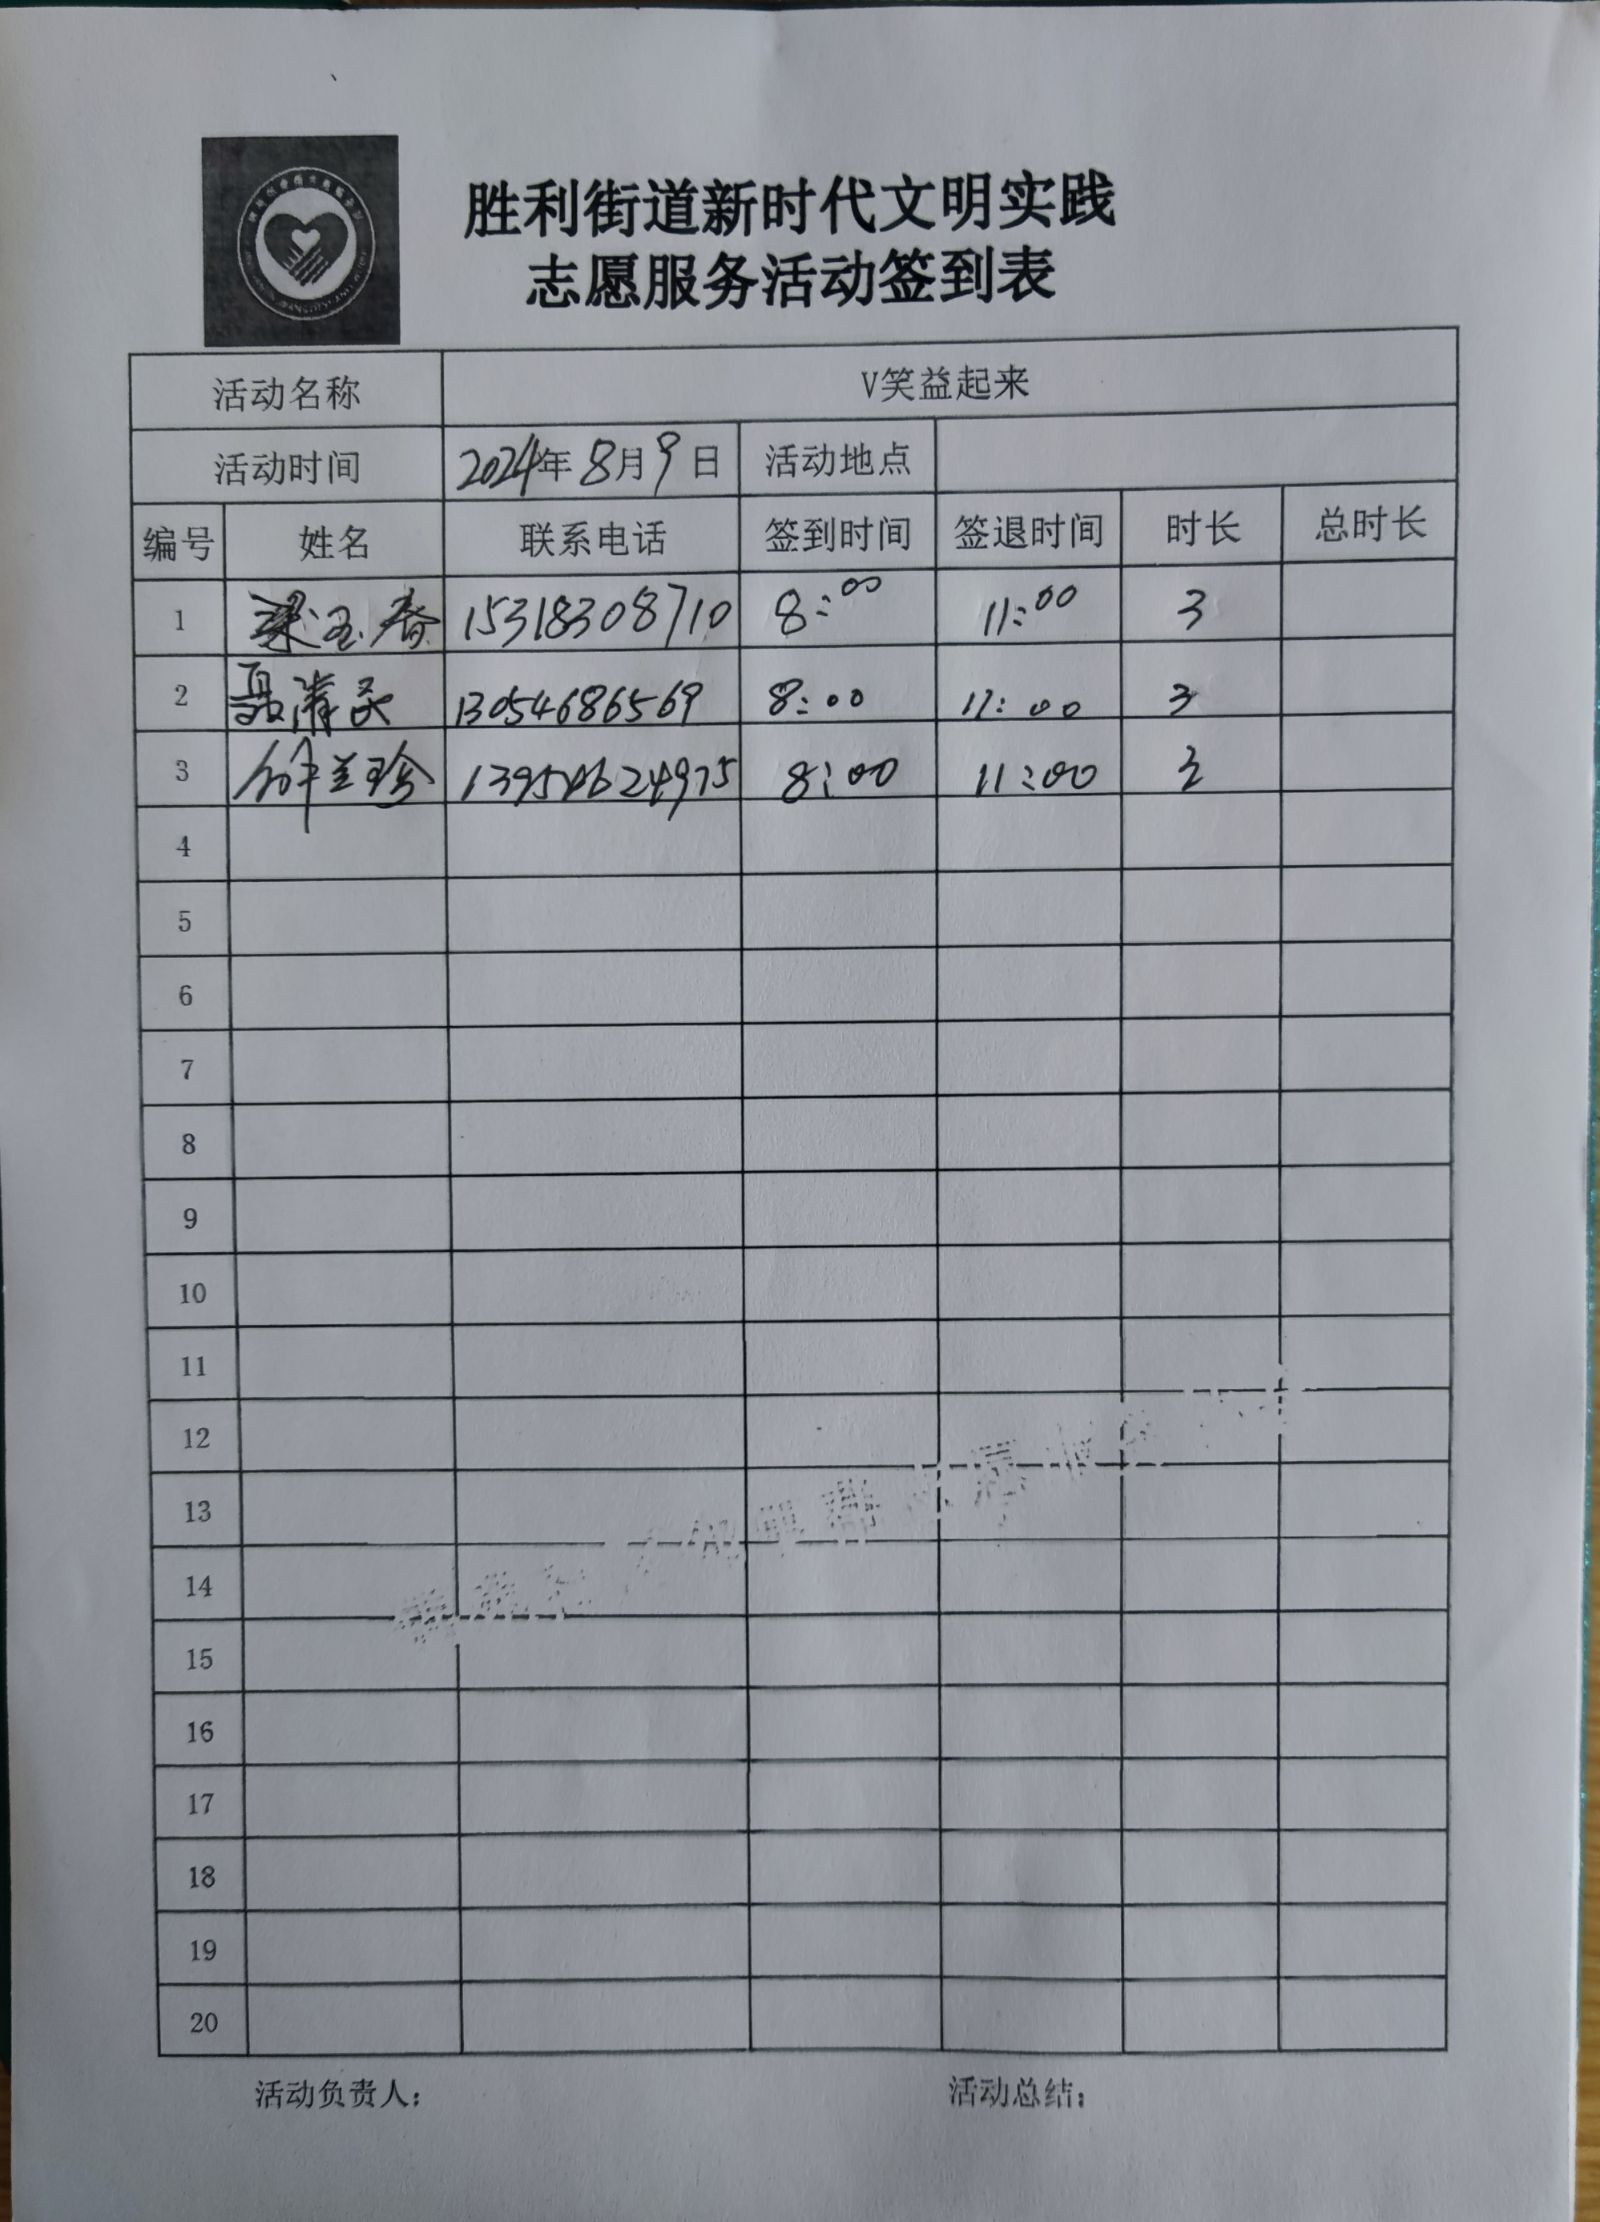 胜利街道新时代文明实践
志愿服务活动签到表
活动名称 V笑益起来
活动时间 2024年8月9日 活动地点
编号 姓名 联系电话 签到时间 签退时间 时长 总时长
1 梁玉春 15318308710 8:00 11:00 3
2 聂清 13054686569 8:00 11:00 3
3 兰珍 13954624975 8:00 11:00 3
4
5
6
7
8
9
10
11
12
13
14
15
16
17
18
19
20
活动负责人： 活动总结：